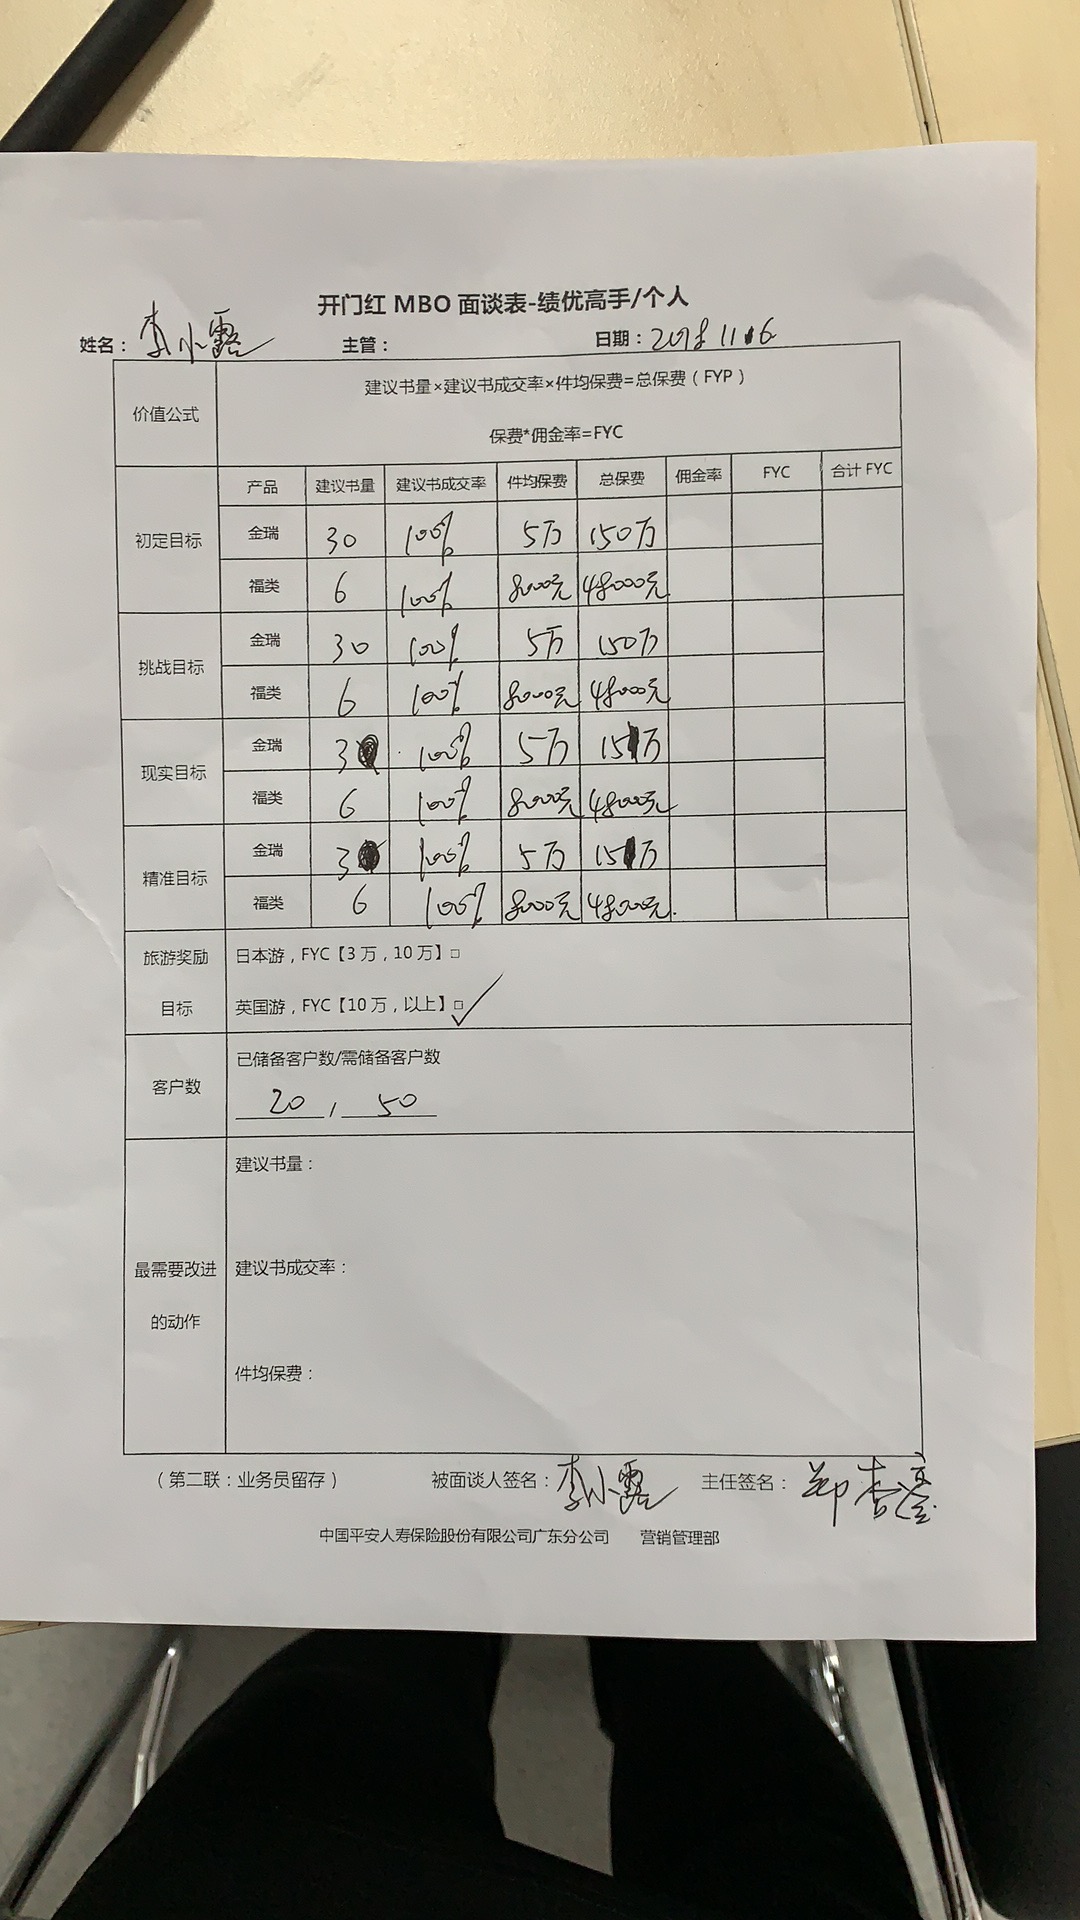 开门红 MBO 面谈表-绩优高手/个人
姓名：李小露 主管： 日期：2018 11 6
价值公式 建议书量×建议书成交率×件均保费=总保费（FYP）
保费*佣金率=FYC
产品 建议书量 建议书成交率 件均保费 总保费 佣金率 FYC 合计 FYC
初定目标 金瑞 30 100% 5万 150万
福类 6 100% 8000元 48000元
挑战目标 金瑞 30 100% 5万 150万
福类 6 100% 8000元 48000元
现实目标 金瑞 3 100% 5万 15万
福类 6 100% 8000元 48000元
精准目标 金瑞 3 100% 5万 15万
福类 6 100% 8000元 48000元.
旅游奖励 日本游，FYC【3万，10万】□
目标 英国游，FYC【10万，以上】□✓
客户数 已储备客户数/需储备客户数
20 / 50
最需要改进的动作 建议书量：
建议书成交率：
件均保费：
（第二联：业务员留存） 被面谈人签名：李小露 主任签名：
中国平安人寿保险股份有限公司广东分公司 营销管理部